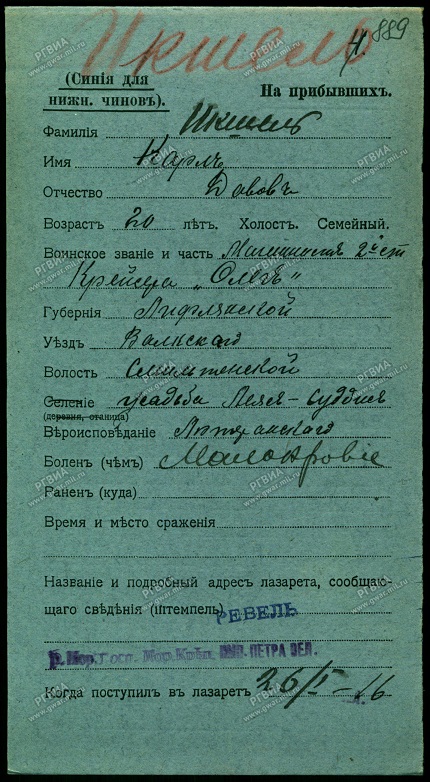 Икшель
4 889
(Синія для
нижн. чиновъ). На прибывшихъ.
Фамилія Икшель
Имя Карлъ
Отчество
Возрастъ 20 лѣтъ. Холост. Семейный.
Воинское званіе и часть Машинистъ 2й ст
Крейсера „Олегъ"
Губернія Лифляндской
Уѣздъ Валкскаго
Волость
Селеніе усадьба
(деревня, станица)
Вѣроисповѣданіе Лютеранскаго
Боленъ (чѣмъ) Малокровіе
Раненъ (куда)
Время и мѣсто сраженія
Названіе и подробный адресъ лазарета, сообщаю-
щаго свѣдѣнія (штемпель)
РЕВЕЛЬ
Мор. Госп. Мор. Крѣп. ИМП. ПЕТРА ВЕЛ.
Когда поступилъ въ лазаретъ 26/I - 16